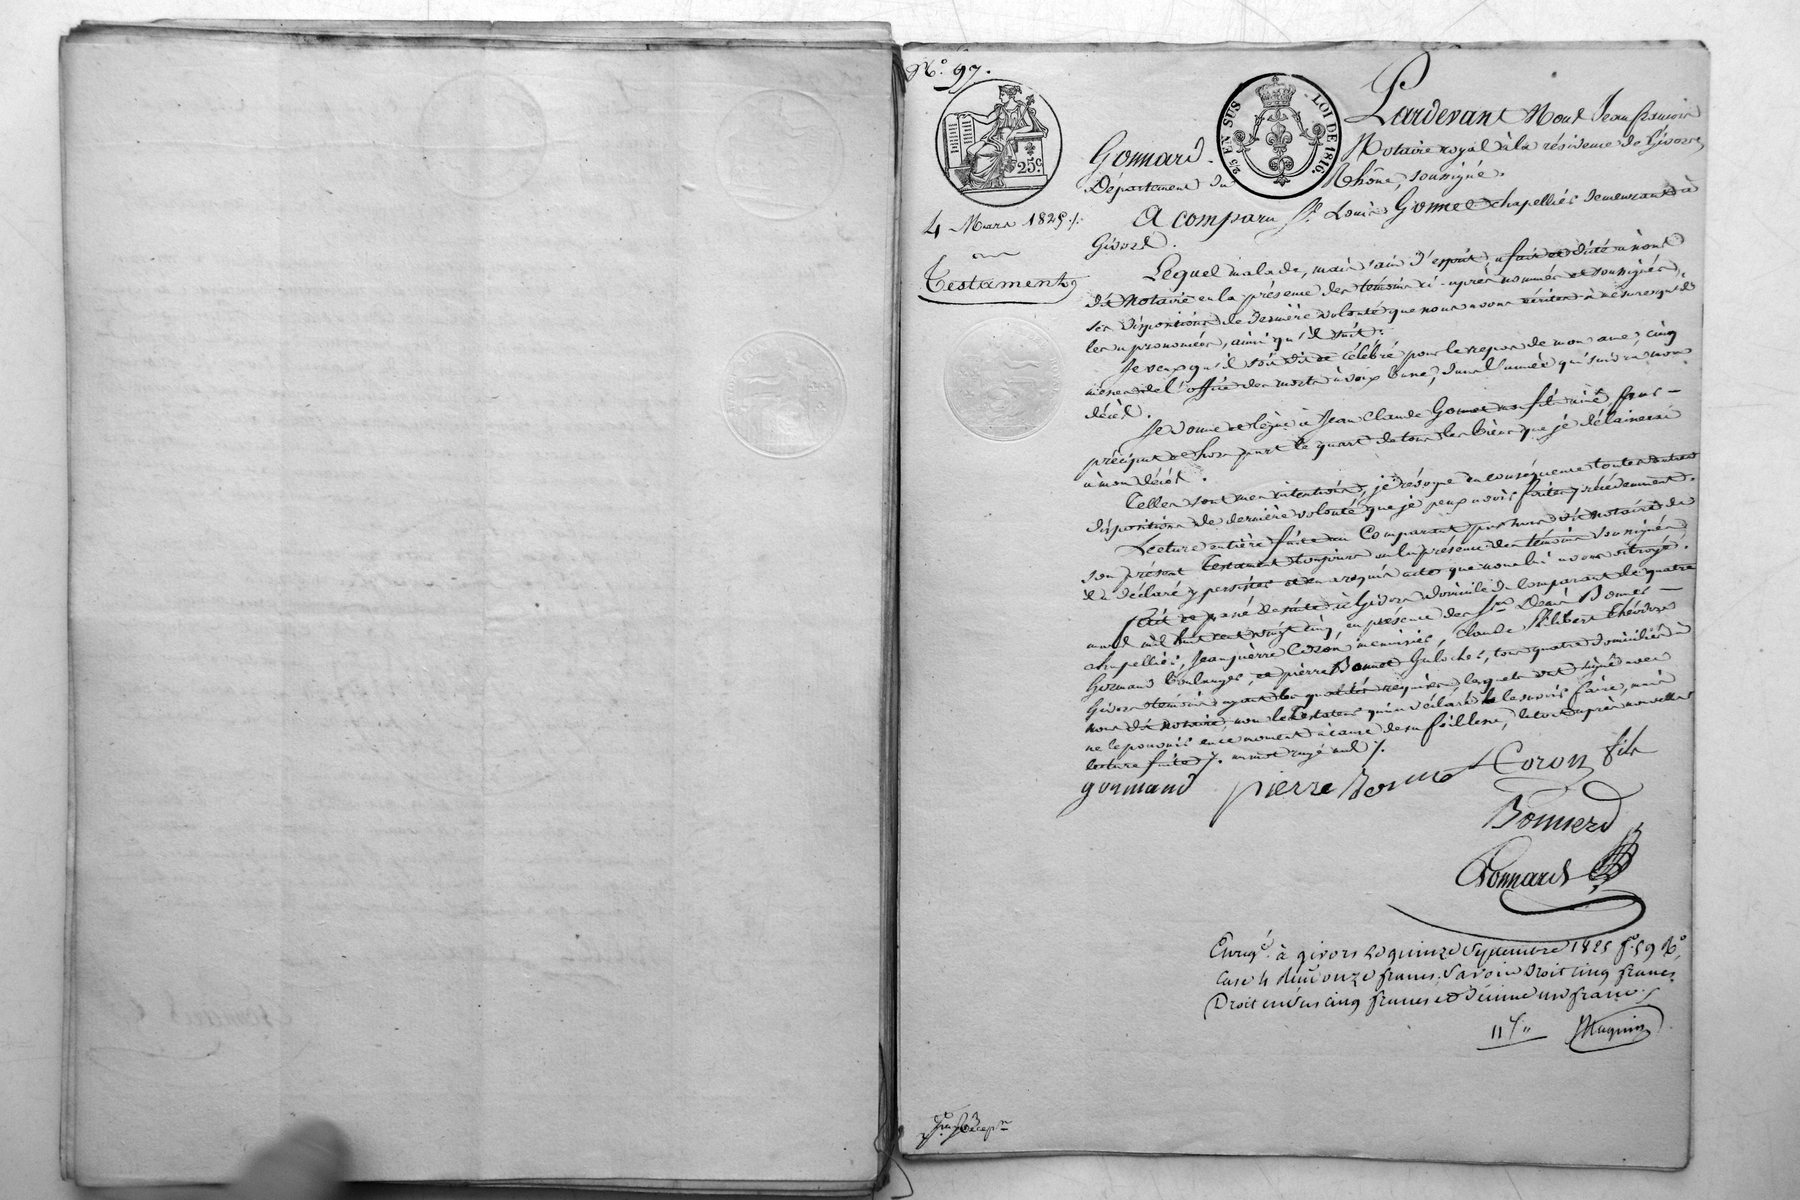 N.° 97.
25 EN SUS LOI DE 1816.
25.c
4 Mars 1825 /.
Testament
Pardevant Nous Jean françois
Gonnard. Notaire royal à la résidence de Givors,
Département du Rhône, soussigné.
A comparu Sr. Louis Gomet chapellier demeurant à
Givors.
Lequel malade, mais sain d'esprit, a fait et dicté à nous
dit Notaire en la présence des témoins ci-après nommés et soussignés,
ses dispositions de dernière volonté que nous avons écrites à mesure qu'il
les a prononcées, ainsi qu'il suit.
Je veux qu'il soit dit et célébré pour le repos de mon ame, cinq
messes de l'office des morts à voix basse, dans l'année qui suivra mon
décès.
Je donne et lègue à Jean Claude Gomet mon fils ainé, par
préciput et hors part le quart de tous les biens que je délaisserai
à mon décès.
Telles sont mes intentions, je révoque en conséquence toutes autres
dispositions de dernière volonté que je peux avoir faites précédemment.
Lecture entière faite au Comparant par nous dit notaire de
son présent Testament toujours en la présence des témoins soussignés
il a déclaré y persister et en a requis acte que nous lui avons octroyé.
Fait et passé de suite à Givors domicile du comparant le quatre
mars mil huit cent vingt cinq, en présence des Srs.
chapellier, Jean pierre Coron menuisier, Claude Philibert Théodore
Gormand boulanger, et pierre Bonnet, tous quatre domiciliés à
Givors témoins ayant les qualités requises, lesquels ont signé avec
nous dit notaire, non le Testateur qui a déclaré le savoir faire, mais
ne le pouvoir en ce moment à cause de sa foiblesse, le tout après nouvelle
lecture faite /. un mot rayé nul /.
gormand pierre Bonnet Coron fils
Bonnerd
Gonnard
Enregé. à givors le quinze Septembre 1825 fo. 59 Ro.
Case 4 Reçu onze francs, Savoir Droit cinq francs
Droit en sus cinq francs et Décime un franc.
11 f "